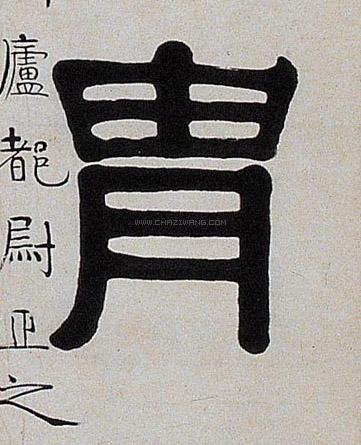 胄
廬都尉亞之
WWW.CHAZIWANG.COM